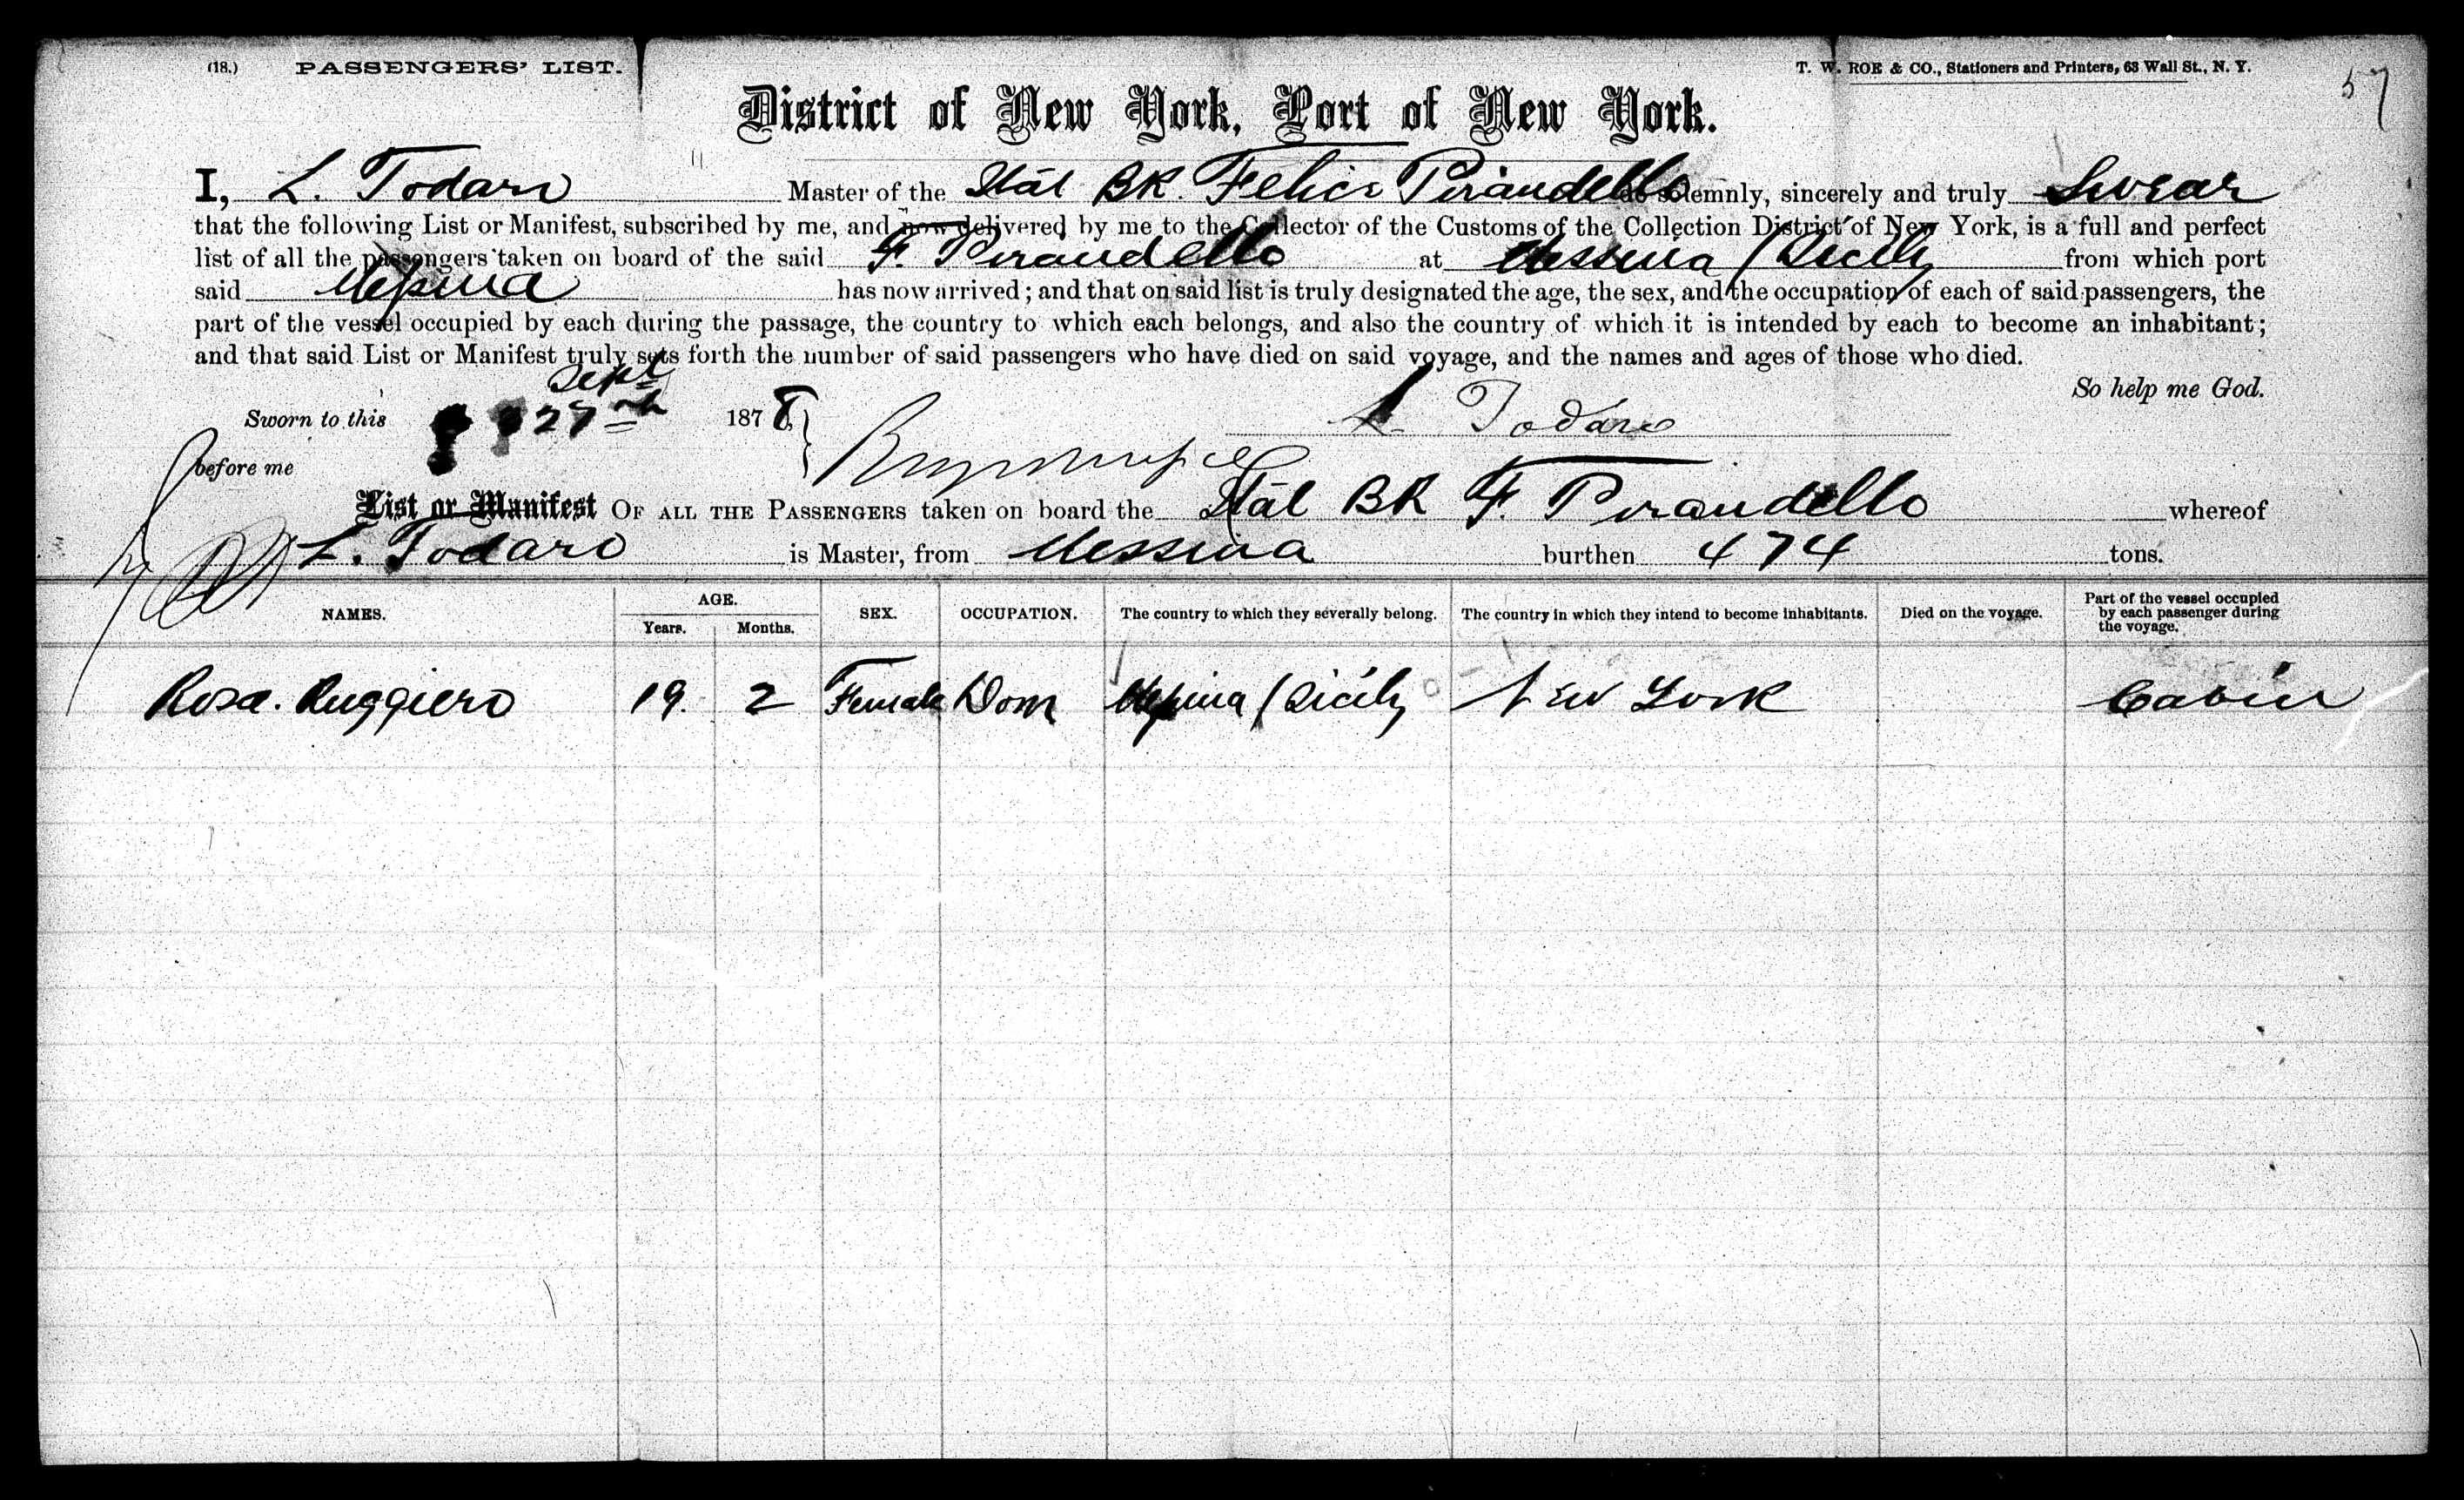 (18.) PASSENGERS' LIST. T. W. ROE & CO., Stationers and Printers, 63 Wall St., N. Y. 57
District of New York, Port of New York.
I, L. Todaro Master of the Ital BK. Felice Pirandello do solemnly, sincerely and truly Swear
that the following List or Manifest, subscribed by me, and now delivered by me to the Collector of the Customs of the Collection District of New York, is a full and perfect
list of all the passengers taken on board of the said F. Pirandello at Messina / Sicily from which port
said Messina has now arrived; and that on said list is truly designated the age, the sex, and the occupation of each of said passengers, the
part of the vessel occupied by each during the passage, the country to which each belongs, and also the country of which it is intended by each to become an inhabitant;
and that said List or Manifest truly sets forth the number of said passengers who have died on said voyage, and the names and ages of those who died.
So help me God.
Sworn to this 27th Sept 1878 L Todaro
before me
List or Manifest OF ALL THE PASSENGERS taken on board the Ital BK F. Pirandello whereof
L. Todaro is Master, from Messina burthen 474 tons.
NAMES. AGE. Years. Months. SEX. OCCUPATION. The country to which they severally belong. The country in which they intend to become inhabitants. Died on the voyage. Part of the vessel occupied by each passenger during the voyage.
Rosa Ruggiero 19. 2 Female Dom Messina / Sicily New York Cabin